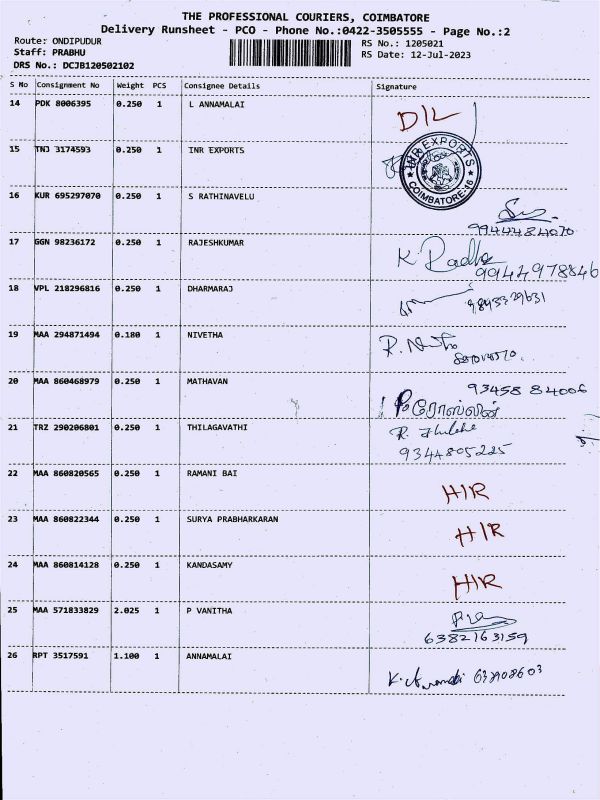 THE PROFESSIONAL COURIERS, COIMBATORE
Delivery Runsheet - PCO - Phone No.:0422-3505555 - Page No.:2
Route: ONDIPUDUR
RS No.: 1205021
Staff: PRABHU
RS Date: 12-Jul-2023
DRS No.: DCJB120502102
S No Consignment No Weight PCS Consignee Details Signature
14 PDK 8006395 0.250 1 L ANNAMALAI
D/L
15 TNJ 3174593 0.250 1 INR EXPORTS
INR EXPORTS
COIMBATORE-16
16 KUR 695297070 0.250 1 S RATHINAVELU
9944484070
17 GGN 98236172 0.250 1 RAJESHKUMAR
K. Radha
9944978846
18 VPL 218296816 0.250 1 DHARMARAJ
19 MAA 294871494 0.180 1 NIVETHA
20 MAA 860468979 0.250 1 MATHAVAN
93458 84006
21 TRZ 290206801 0.250 1 THILAGAVATHI
9344805225
22 MAA 860820565 0.250 1 RAMANI BAI
HIR
23 MAA 860822344 0.250 1 SURYA PRABHARKARAN
HIR
24 MAA 860814128 0.250 1 KANDASAMY
HIR
25 MAA 571833829 2.025 1 P VANITHA
6382163159
26 RPT 3517591 1.100 1 ANNAMALAI